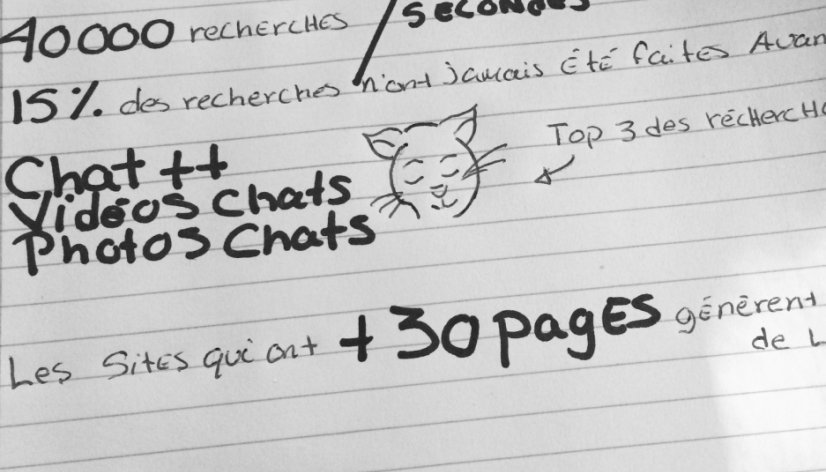 40000 recherches / SECONDES
15% des recherches n'ont jamais été faites Avan
Top 3 des recherch
Chat ++
Vidéos Chats
Photos Chats
Les sites qui ont +30 pages génèrent
de L